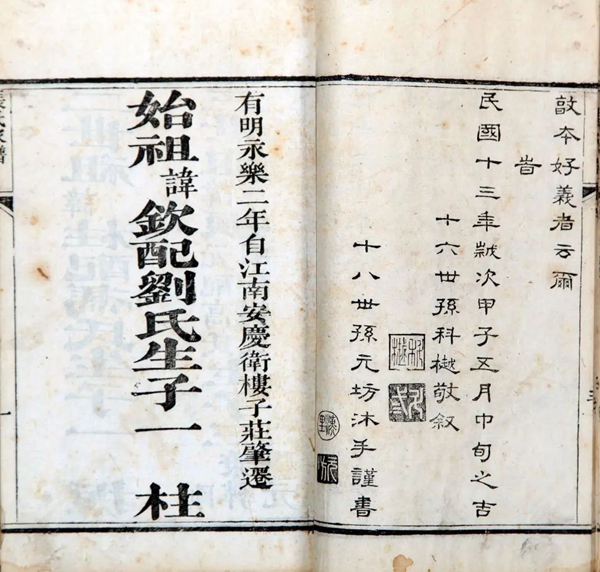 敦本好義者云爾
旹
民國十三年歲次甲子五月中旬之吉
十六世孫科樾敬叙
十八世孫元坊沐手謹書
有明永樂二年自江南安慶衛樓子莊肇遷
始祖諱欽配劉氏生子一 柱